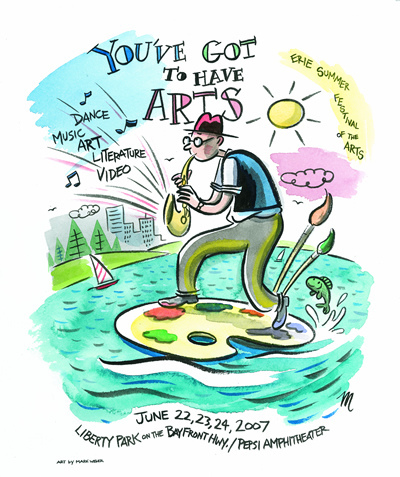 YOU'VE GOT
TO HAVE
ARTS
ERIE SUMMER
FESTIVAL
OF THE
ARTS
DANCE
MUSIC
ART
LITERATURE
VIDEO
M
JUNE 22,23,24, 2007
LIBERTY PARK ON THE BAYFRONT HWY./PEPSI AMPHITHEATER
ART by MARK WEBER